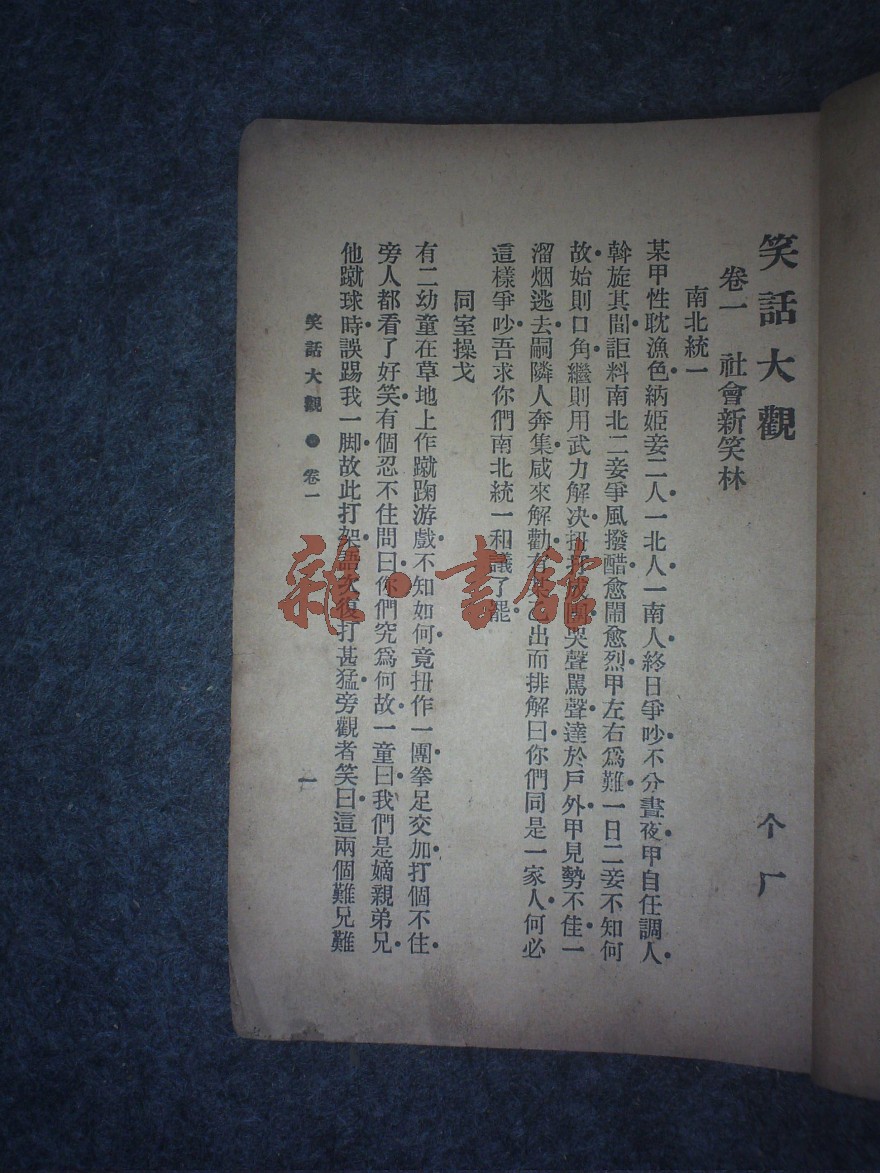 笑話大觀
个厂
卷一 社會新笑林
南北統一
某甲性耽漁色。納姬妾二人。一北人。一南人。終日爭吵。不分晝夜。甲自任調人。
斡旋其間。詎料南北二妾。爭風撥醋。愈鬧愈烈。甲左右爲難。一日二妾不知何
故。始則口角。繼則用武力解决。扭哭聲駡聲。達於戶外。甲見勢不佳。一
溜烟逃去。嗣隣人奔集。咸來解勸。有某乙出而排解曰。你們同是一家人。何必
這樣爭吵。吾求你們南北統一和議了罷。
同室操戈
有二幼童。在草地上作蹴踘游戲。不知如何。竟扭作一團。拳足交加。打個不住。
旁人都看了好笑。有個忍不住問曰。你們究爲何故。一童曰。我們是嫡親弟兄。
他蹴球時。誤踢我一脚。故此打架。語復打甚猛。旁觀者笑曰。這兩個難兄難
笑話大觀 ● 卷一
一
雜·書館